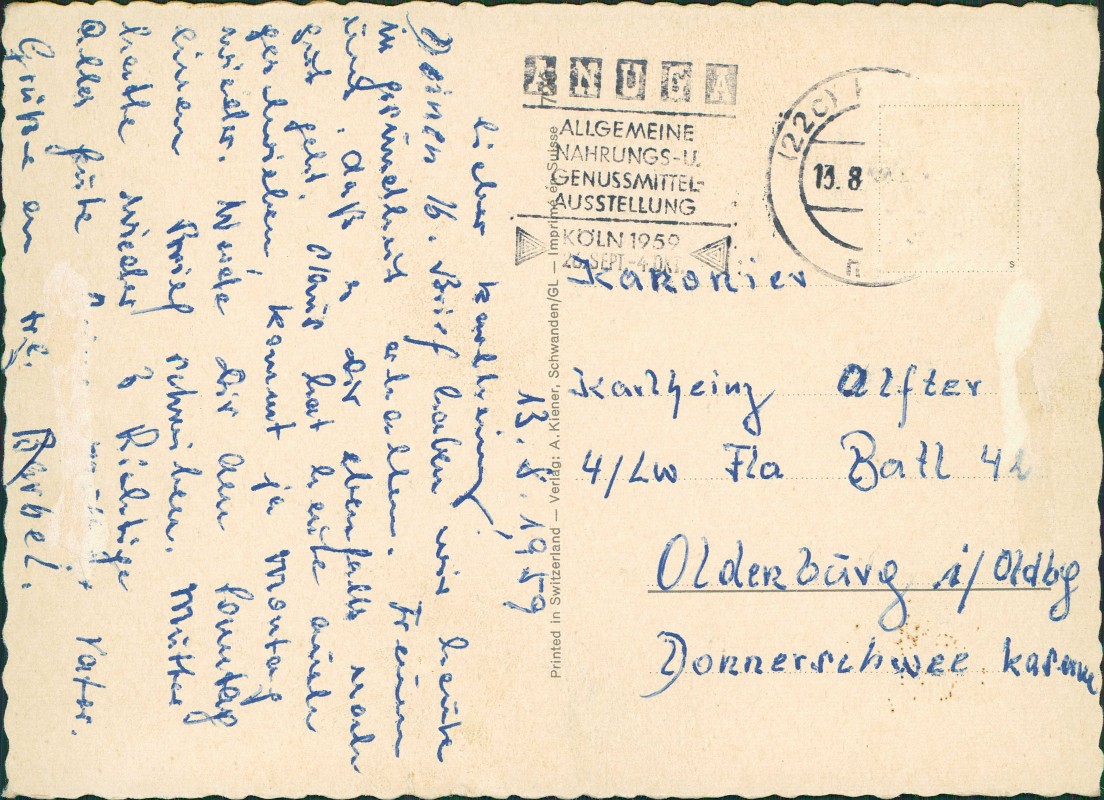 ANUGA
ALLGEMEINE
NAHRUNGS-U.
GENUSSMITTEL-
AUSSTELLUNG
KÖLN 1959
26.SEPT.-4.OKT.
(22c)
13.8
s
Kanonier
Karlheinz Alfter
4/Lw Fla Batl 42
Oldenburg i/Oldbg
Donnerschwee Kaserne
Printed in Switzerland — Verlag: A. Kiener, Schwanden/GL — Imprimé en Suisse
13.8.1959
lieber Karlheinz!
Deinen 16. Brief haben wir heute
in Gesundheit erhalten. Freuen
uns, daß es Dir ebenfalls noch
gut geht. Klaus hat heute auch
geschrieben kommt ja Montag
wieder. Werde Dir am Sonntag
einen Brief schreiben. Mutter
hatte wieder Richtige
Alles Gute Vater.
Grüße an Bärbel.